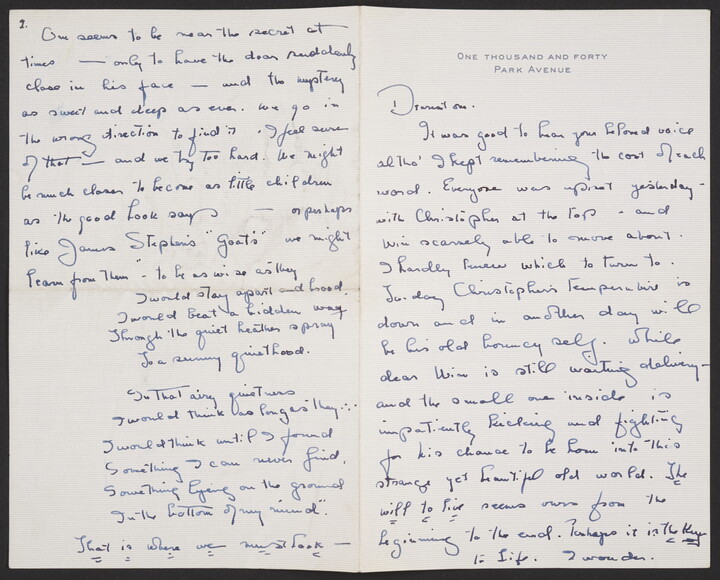 ONE THOUSAND AND FORTY
PARK AVENUE
Dearest on.
It was good to hear your beloved voice
altho' I kept remembering the cost of each
word. Everyone was upset yesterday -
with Christopher at the top - and
Win scarsely able to move about.
I hardly knew which to turn to.
To-day Christopher's temperature is
down and in another day will
be his old bouncy self. While
dear Win is still waiting delivery -
and the small one inside is
impatiently kicking and fighting
for his chance to be born into this
strange yet beautiful old world. The
will to live seems ours from the
beginning to the end. Perhaps it is the Key
to Life. I wonder.
2.
One seems to be near the secret at
times — only to have the door suddenly
close in his face — and the mystery
as sweet and deep as ever. We go in
the wrong direction to find it. I feel sure
of that — and we try too hard. We might
be much closer to become as little children
as the good book says — or perhaps
like James Stephens "Goats" we might
learn from them - to be as wise as they
I would stay apart and brood.
I would beat a hidden way
Through the quiet heather spray
To a sunny quiethood.
In that airy quietness
I would think as long as they...
I would think until I found
Something I can never find,
Something lying on the ground
In the bottom of my mind".
That is where we must look —